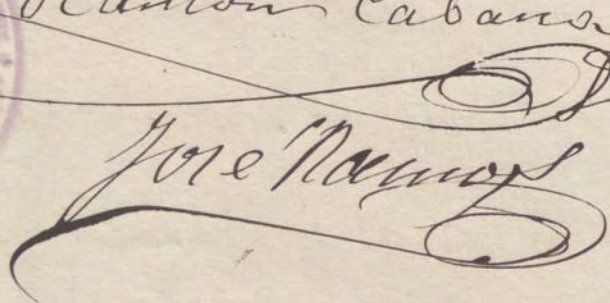 Ramon Cabana
Jose Ramos